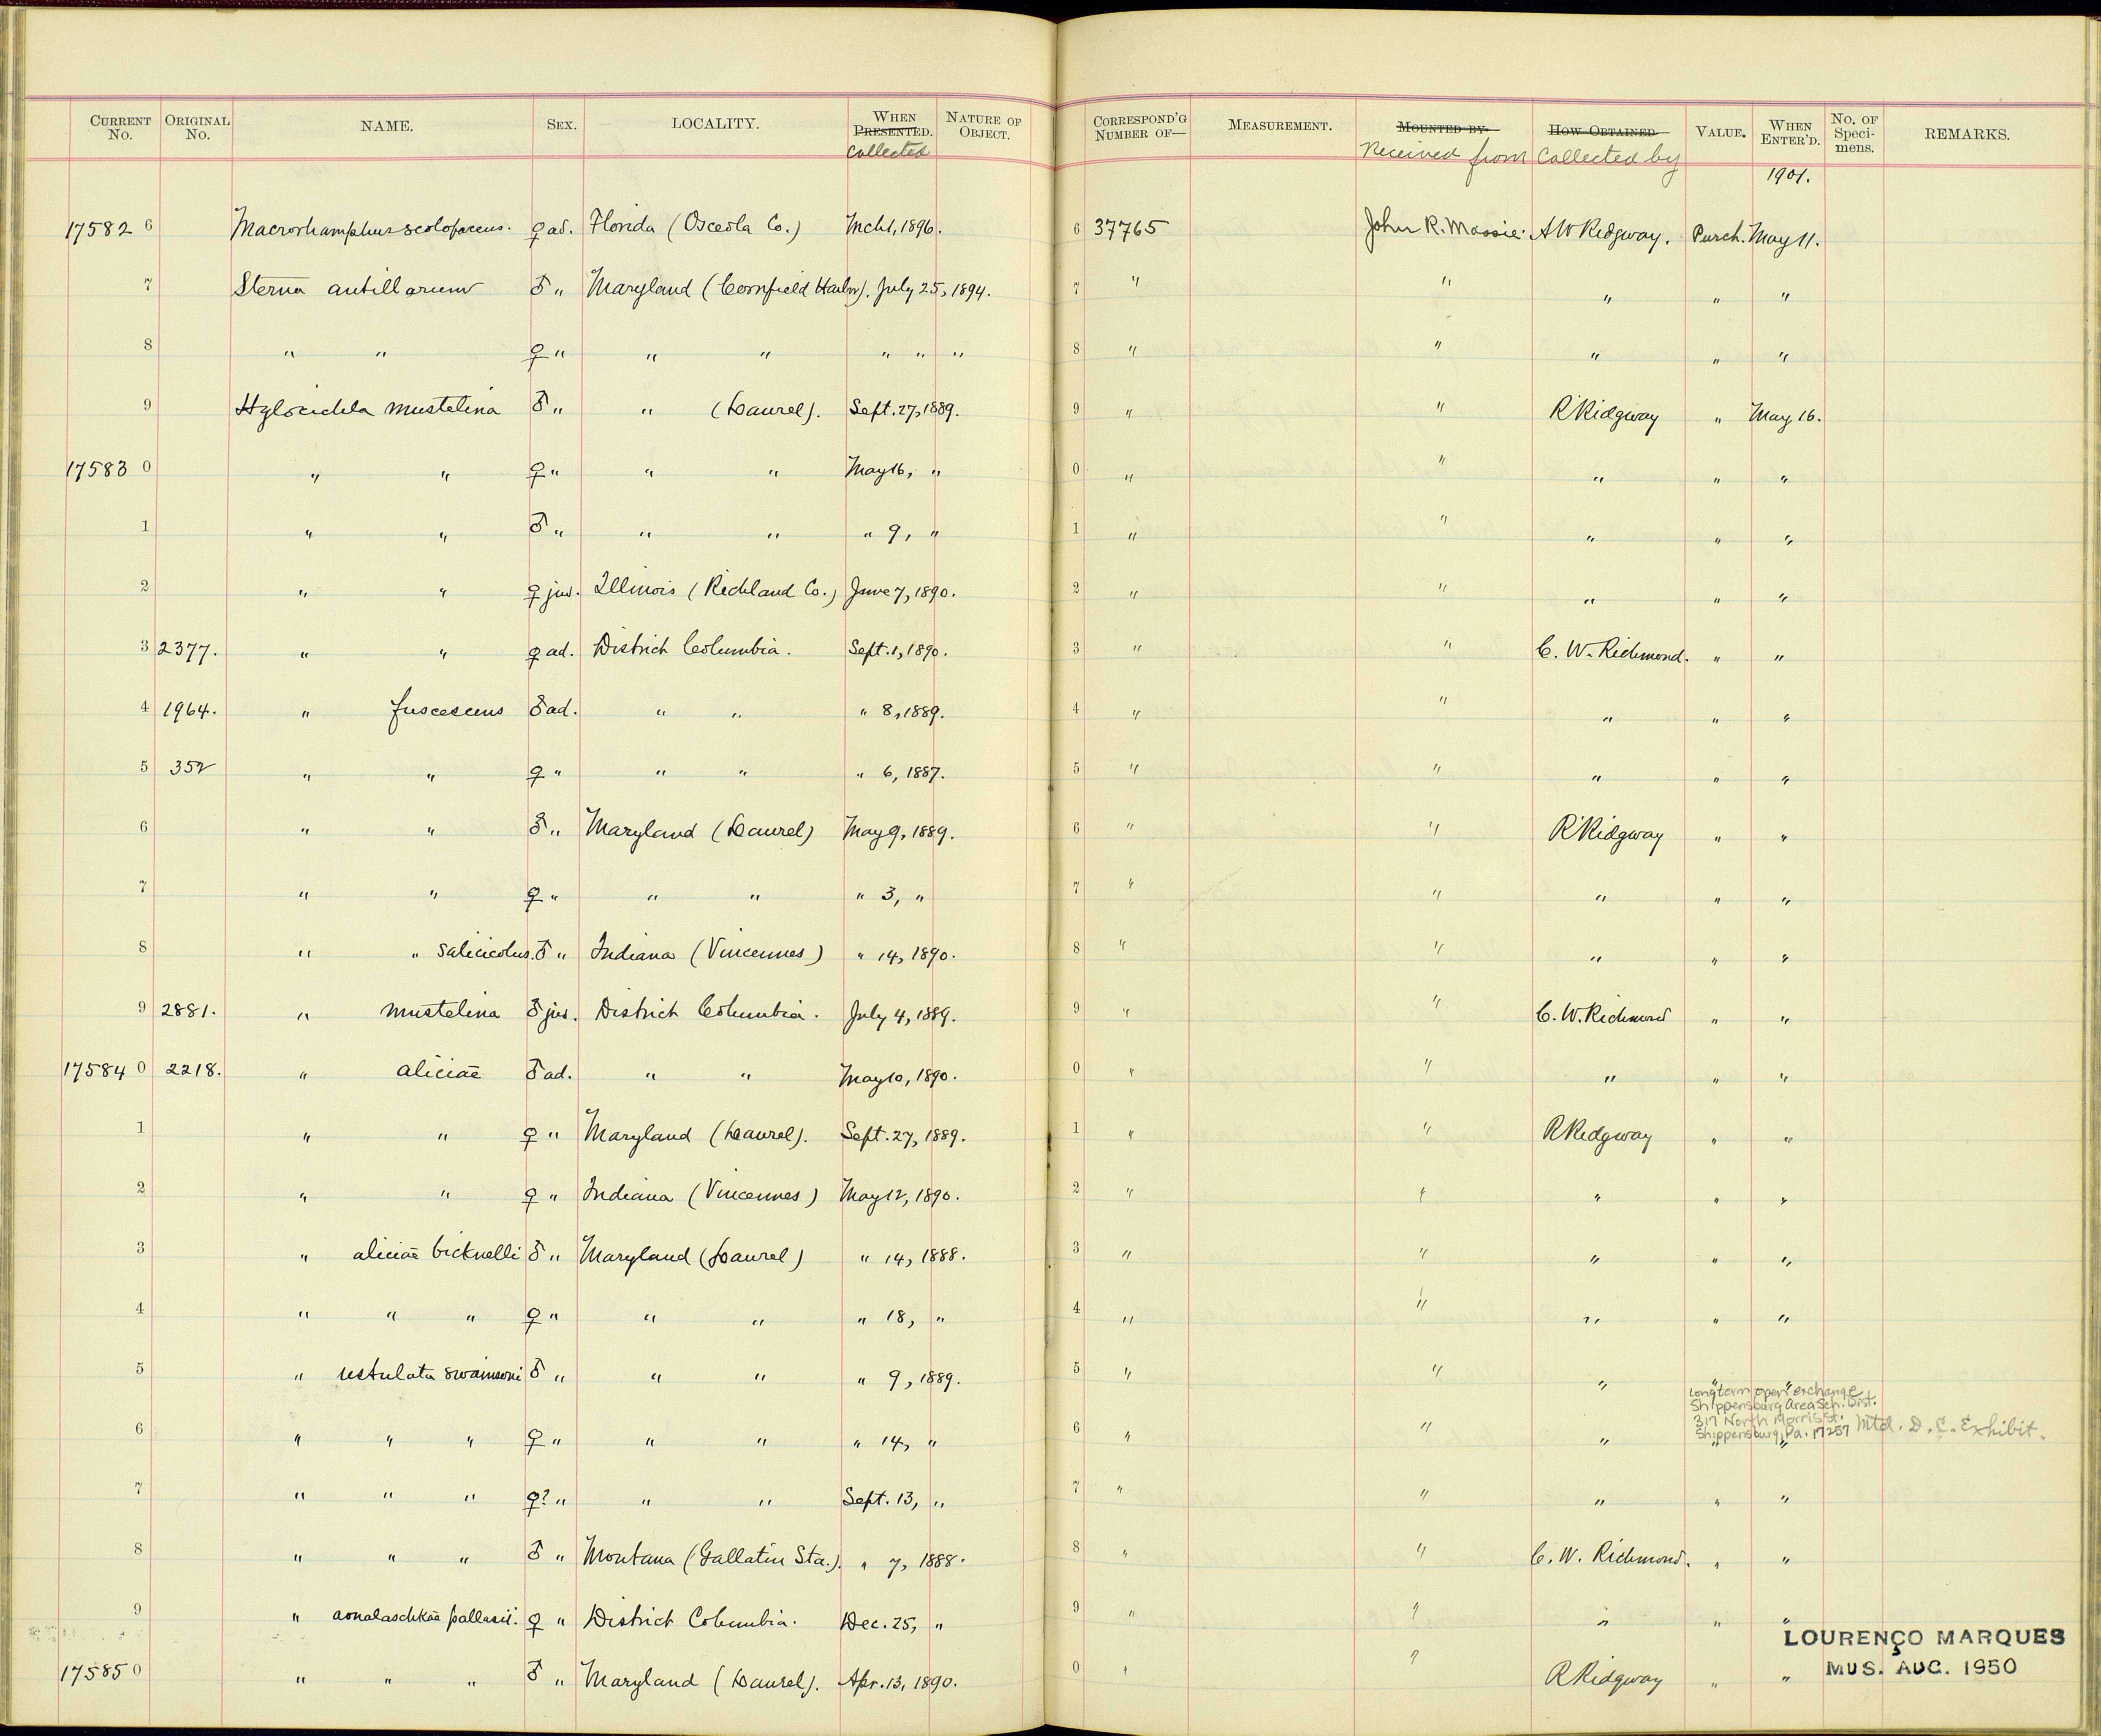 CURRENT No. ORIGINAL No. NAME. SEX. LOCALITY. WHEN PRESENTED. collected NATURE OF OBJECT. CORRESPOND'G NUMBER OF— MEASUREMENT. MOUNTED BY Received from HOW OBTAINED Collected by VALUE. WHEN ENTER'D. No. OF Speci-mens. REMARKS.
1901.
17582 6 Macrorhamphus scolopaceus. ♀ ad. Florida (Osceola Co.) Mch 1, 1896. 6 37765 John R. Massie. A W Ridgway. Purch. May 11.
7 Sterna antillarum ♂ " Maryland (Cornfield Harbr). July 25, 1894. 7 " " " " "
8 " " ♀ " " " " " " 8 " " " " "
9 Hylocichla mustelina ♂ " " (Laurel). Sept. 27, 1889. 9 " " R Ridgway " May 16.
17583 0 " " ♀ " " " May 16, " 0 " " " " "
1 " " ♂ " " " " 9, " 1 " " " " "
2 " " ♀ juv. Illinois (Richland Co.) June 7, 1890. 2 " " " " "
3 2377. " " ♀ ad. District Columbia. Sept. 1, 1890. 3 " " C. W. Richmond. " "
4 1964. " fuscescens ♂ ad. " " " 8, 1889. 4 " " " " "
5 352 " " ♀ " " " " 6, 1887. 5 " " " " "
6 " " ♂ " Maryland (Laurel) May 9, 1889. 6 " " R Ridgway " "
7 " " ♀ " " " " 3, " 7 " " " " "
8 " " salicicolus. ♂ " Indiana (Vincennes) " 14, 1890. 8 " " " " "
9 2881. " mustelina ♂ juv. District Columbia. July 4, 1889. 9 " " C. W. Richmond " "
17584 0 2218. " aliciæ ♂ ad. " " May 10, 1890. 0 " " " " "
1 " " ♀ " Maryland (Laurel). Sept. 27, 1889. 1 " " R Ridgway " "
2 " " ♀ " Indiana (Vincennes) May 12, 1890. 2 " " " " "
3 " aliciæ bicknelli ♂ " Maryland (Laurel) " 14, 1888. 3 " " " " "
4 " " " ♀ " " " " 18, " 4 " " " " "
5 " ustulata swainsoni ♂ " " " " 9, 1889. 5 " " " " "
Longterm open exchange
Shippensburg Area Sch. Dist.
317 North Morris St.
Shippensburg, Pa. 17257
6 " " " ♀ " " " " 14, " 6 " " " " " Mtd. D. C. Exhibit.
7 " " " ♀? " " " Sept. 13, " 7 " " " " "
8 " " " ♂ " Montana (Gallatin Sta.). " 7, 1888. 8 " " C. W. Richmond. " "
9 " aonalaschkæ pallasii. ♀ " District Columbia. Dec. 25, " 9 " " " " "
17585 0 " " " ♂ " Maryland (Laurel). Apr. 13, 1890. 0 " " R Ridgway " "
LOURENÇO MARQUES
MUS. AUG. 1950